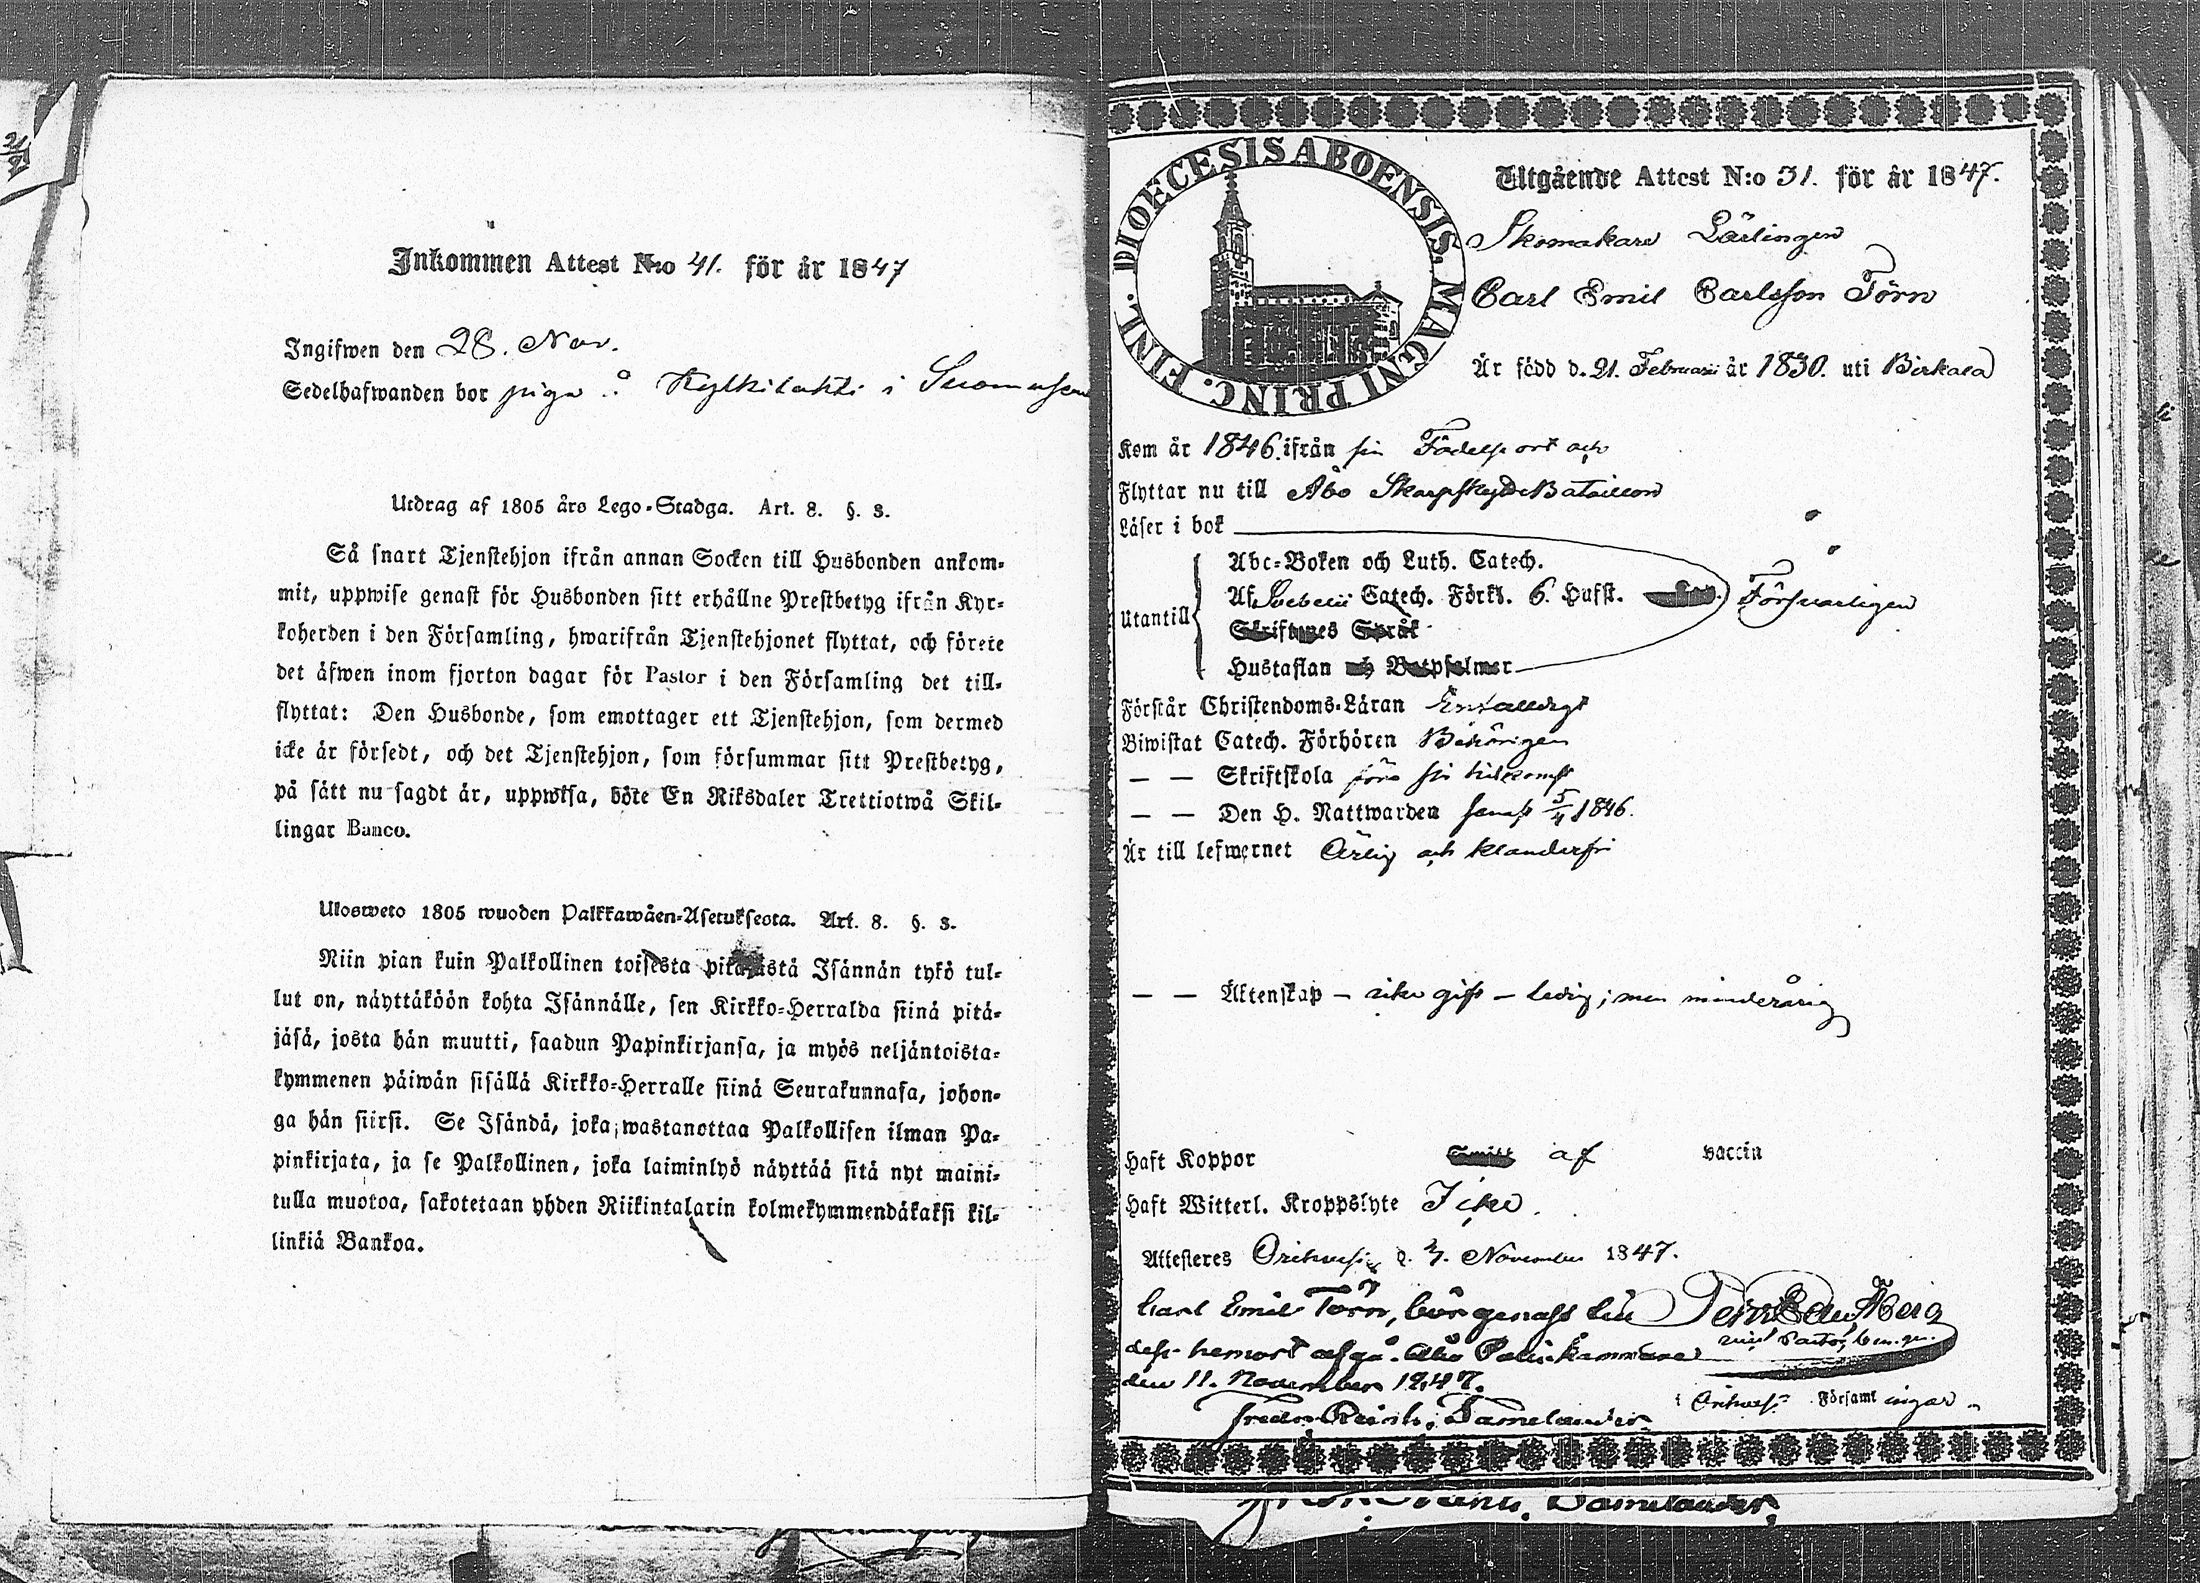 Inkommen Attest N:o 41. för år 1847
Ingifwen den 28. Nov.
Sedelhafwanden bor piga å Kylkilahti i
Utdrag af 1805 års Lego-Stadga. Art. 8. §. 3.
Så snart Tjenstehjon ifrån annan Socken till Husbonden ankom-
mit, uppwise genast för Husbonden sitt erhållne Prestbetyg ifrån Kyr-
koherden i den Församling, hwarifrån Tjenstehjonet flyttat, och förete
det äfwen inom fjorton dagar för Pastor i den Församling det till-
flyttat: Den Husbonde, som emottager ett Tjenstehjon, som dermed
icke är försedt, och det Tjenstehjon, som försummar sitt Prestbetyg,
på sätt nu sagdt är, uppwisa, böte En Riksdaler Trettiotwå Skil-
lingar Banco.
Ulosweto 1805 wuoden Palkkawäen-Asetuksesta. Art. 8. §. 3.
Niin pian kuin Palkollinen toisesta pitäjästä Isännän tykö tul-
lut on, näyttäköön kohta Isännälle, sen Kirkko-Herralda siinä pitä-
jäsä, josta hän muutti, saadun Papinkirjansa, ja myös neljäntoista-
kymmenen päiwän sisällä Kirkko-Herralle siinä Seurakunnasa, johon-
ga hän siirsi. Se Isändä, joka wastanottaa Palkollisen ilman Pa-
pinkirjata, ja se Palkollinen, joka laiminlyö näyttää sitä nyt maini-
tulla muotoa, sakotetaan yhden Riikintalarin kolmekymmendäkaksi kil-
linkiä Bankoa.
DIOECESIS ABOENSIS. MAGNI PRINC. FINL.
Utgående Attest N:o 31. för år 1847.
Skomakare Lärlingen
Carl Emil Carlsson Törn
Är född d. 21. Februarii år 1830. uti Birkala
Kom år 1846. ifrån sin Födelseort och
Flyttar nu till Åbo Skarpskytte Bataillon
Läser i bok
Abc-Boken och Luth. Catech.
Utantill Af Svebelii Catech. Förkl. 6. Hufst. Försvarligen
Skriftenes Språk
Hustaflan och Botpsalmer
Förstår Christendoms-Läran Enfalldigt
Biwistat Catech. Förhören Behörigen
— — Skriftskola före sin hitkomst
— — Den H. Nattwarden senast 5/4 1846.
Är till lefwernet Ärlig och klanderfri
— — Äktenskap – icke gift – ledig; men minderårig
Haft Koppor af vaccin
Haft Witterl. Kroppslyte Icke.
Attesteres Orihvesi d. 7. November 1847.
Carl Emil Törn, bör genast till
dess hemort afgå. Åbo Poliskammare
den 11. November 1847.
i Orihvesi Församlingar